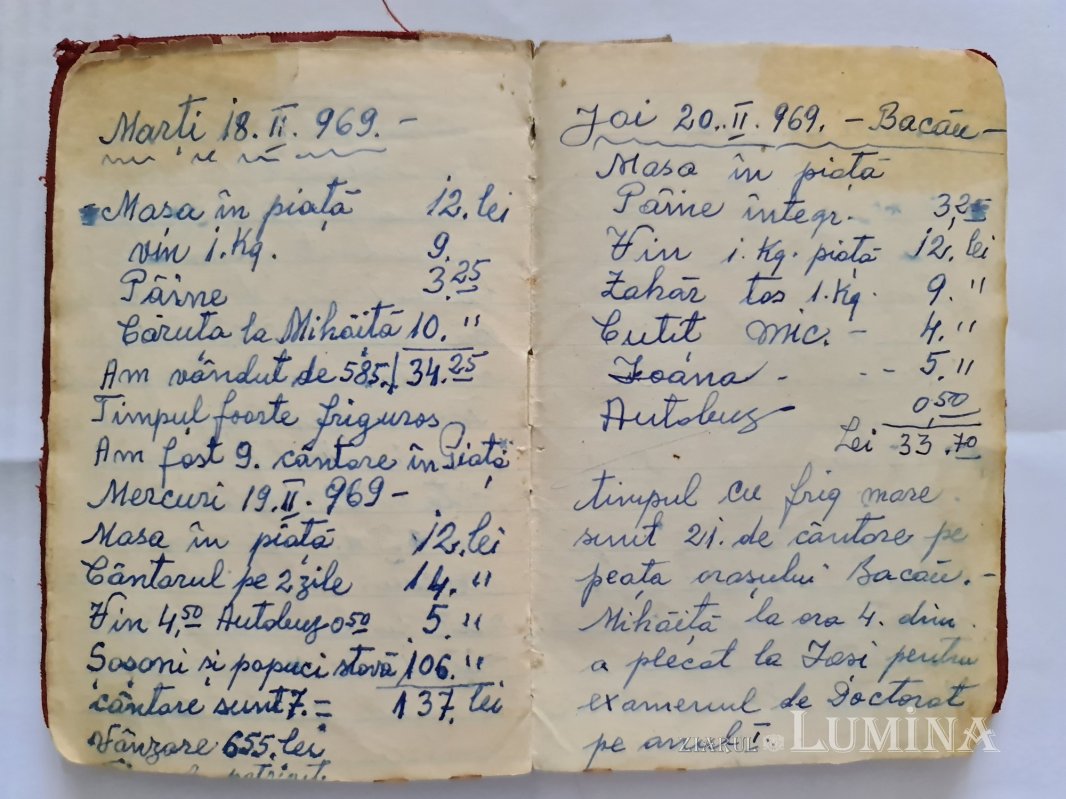 Marți 18.II.969.-
Masa în piață 12.lei
vin 1.Kg. 9.
Pâine 3.25
Căruta la Mihăită 10."
Am vândut de 585. 34.25
Timpul foarte friguros
Am fost 9. cântare în Piață
Mercuri 19.II.969-
Masa în piață 12.lei
Cântarul pe 2 zile 14."
Vin 4,50 Autobuz 0 50 5."
Șoșoni și papuci stovă 106."
cântare sunt 7.= 137.lei
Vânzare 655.lei
Joi 20.II.969.-Bacău-
Masa în piață
Pâine integr. 3,25
Vin 1.Kg.piață 12.lei
Zahăr tos 1.Kg. 9."
Cutit mic.- 4."
Ioana - -- 5."
Autobuz 0,50
Lei 33.70
timpul cu frig mare.
sunt 21. de cântare pe
peața orașului Bacău.-
Mihăiță la ora 4. dim.
a plecat la Iași pentru
examenul de Doctorat
pe
ZIARUL LUMINA